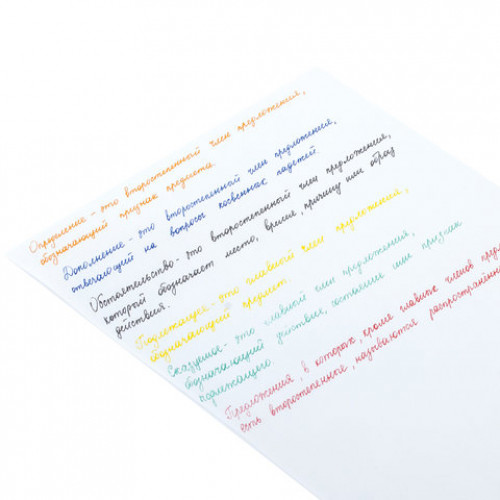 Определение - это второстепенный член предложения,
обозначающий признак предмета.
Дополнение - это второстепенный член предложения,
отвечающий на вопросы косвенных падежей.
Обстоятельство - это второстепенный член предложения,
который обозначает место, время, причину или образ
действия.
Подлежащее - это главный член предложения,
обозначающий предмет.
Сказуемое - это главный член предложения,
обозначающий действие, состояние или признак
подлежащего.
Предложения, в которых, кроме главных членов предл
есть второстепенные, называются распространённы